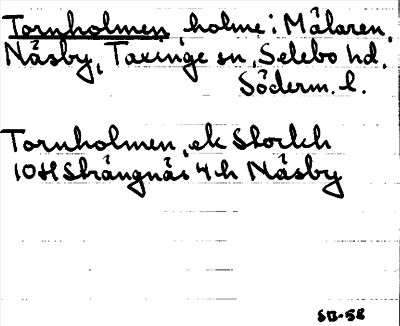 Tornholmen, holme i Mälaren,
Näsby, Taxinge sn, Selebo hd,
Söderm. l.
Tornholmen, ek Storkch
10H Strängnäs 4h Näsby
SB-58